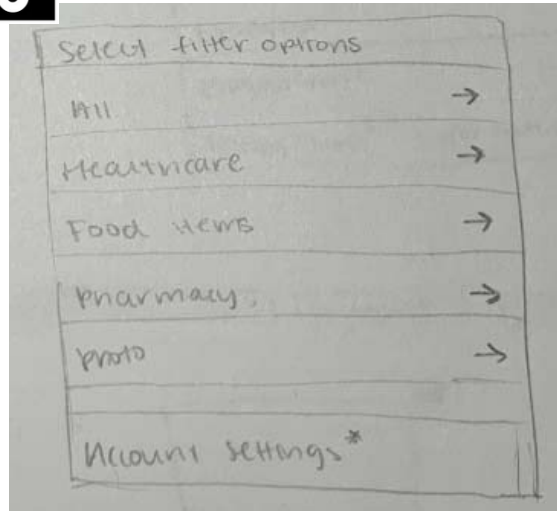 Select filter options
All →
Healthcare →
Food items →
pharmacy →
photo →
Account settings*